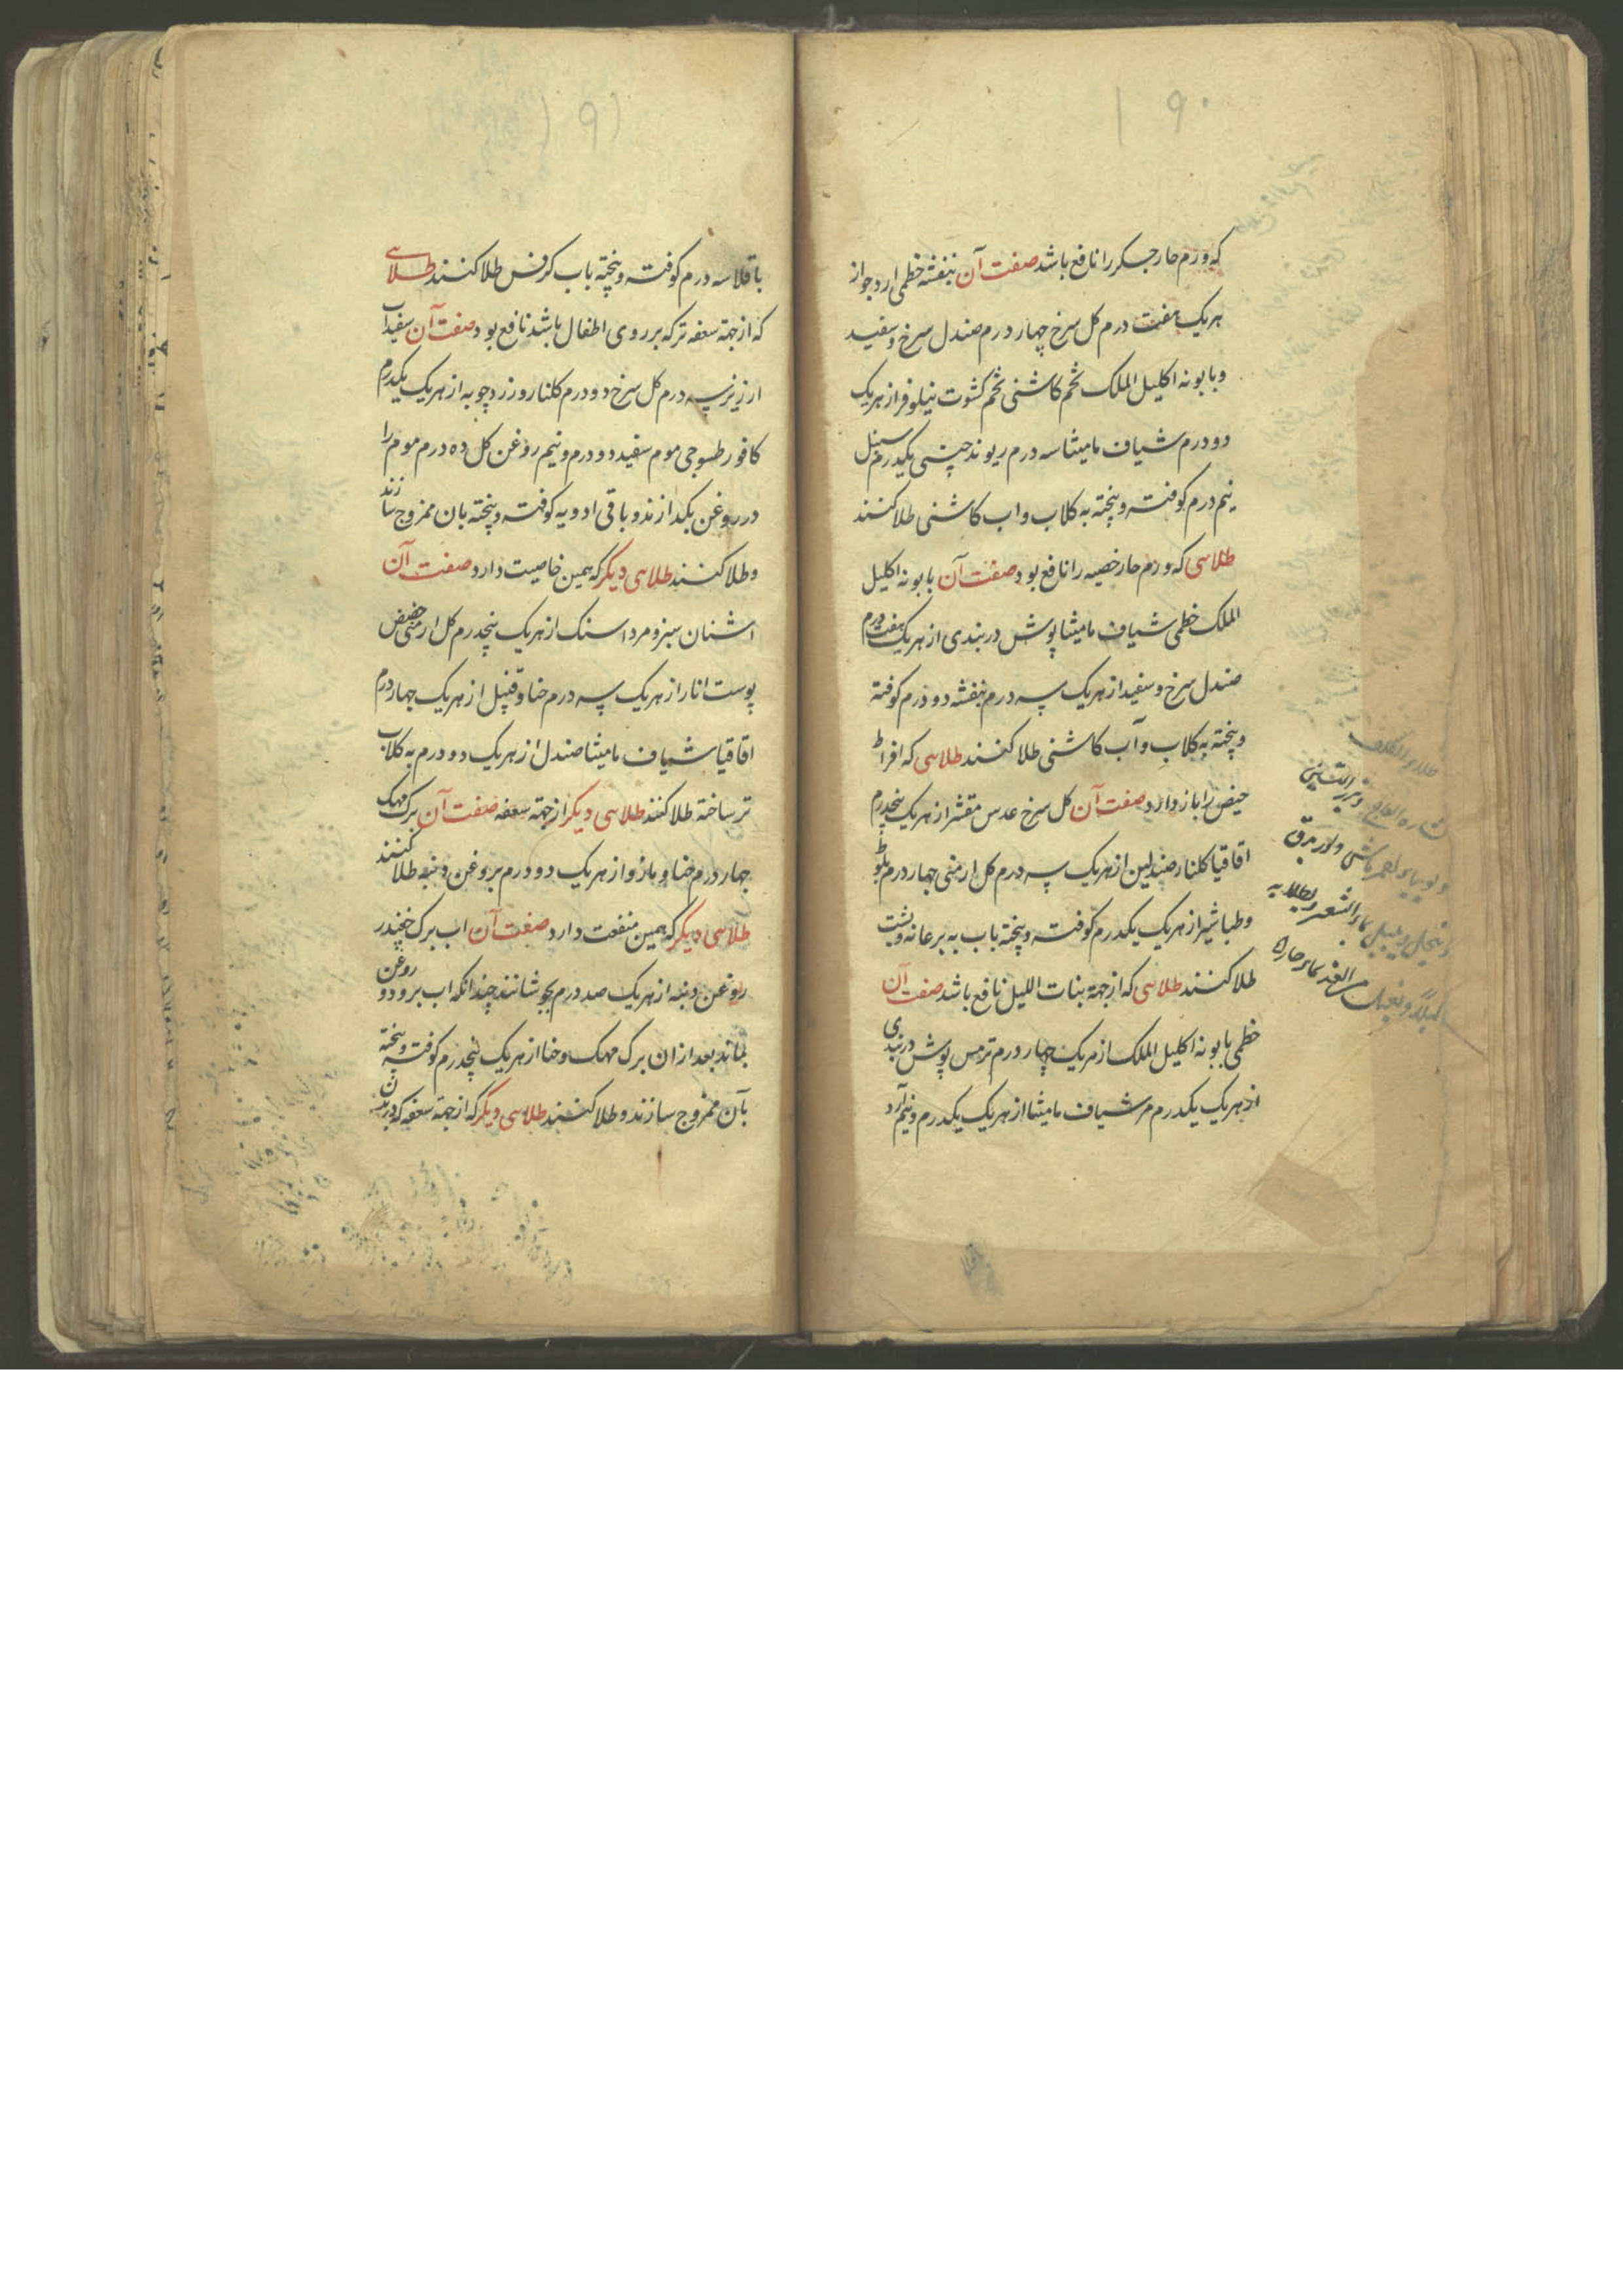 ۱۹۰
که ورم حار جکر را نافع باشد صفت آن بنفشه خطمی ارد جو از
هریک هفت درم کل سرخ چهار درم صندل سرخ و سفید
و بابونه اکلیل الملک تخم کاشنی تخم کشوت نیلوفر از هریک
دو درم شیاف مامیثا سه درم ریوند چینی یکدرم سنبل
نیم درم کوفته و پخته به کلاب و اب کاشنی طلا کنند
طلاسی که ورم حار خصیه را نافع بود صفت آن بابونه اکلیل
الملک خطمی شیاف مامیثا پوش دربندی از هریک هفت درم
صندل سرخ و سفید از هریک سه درم بنفشه دو درم کوفته
و پخته به کلاب و آب کاشنی طلا کنند طلاسی که افراط
حیض را باز دارد صفت آن کل سرخ عدس مقشر از هریک پنجدرم
اقاقیا کلنار صندلین از هریک سه درم کل ارمنی جهار درم بلوط
و طباشیر از هریک یکدرم کوفته و پخته باب به بر عانه و پشت
طلا کنند طلاسی که از جهة بنات اللیل نافع باشد صفت آن
خطمی بابونه اکلیل الملک از هریک چهار درم ترمس پوش دربندی
از هریک یکدرم شیاف مامیثا از هریک یکدرم و نیم آرد
۱۹۱
باقلا سه درم کوفته و پخته باب کرفس طلا کنند طلاسی
که از جهة سعفه تر که بر روی اطفال باشد نافع بود صفت آن سفیداب
ارزیز سه درم کل سرخ دو درم کلنار و زردچوبه از هریک یکدرم
کافور طسوجی موم سفید دو درم و نیم روغن کل ده درم موم را
در روغن بکدازند و باقی ادویه کوفته و پخته بان ممزوج سازند
و طلا کنند طلاسی دیکر که همین خاصیت دارد صفت آن
اشنان سبز و مرداسنک از هریک پنجدرم کل ارمنی حضض
پوست انار از هریک سه درم حنا و قنبیل از هریک جهار درم
اقاقیا شیاف مامیثا صندل از هریک دو درم به کلاب
تر ساخته طلا کنند طلاسی دیکر از جهة سعفه صفت آن برک مهک
جهار درم حنا و مازو از هریک دو درم بروغن دنبه طلا کنند
طلاسی دیکر که همین منفعت دارد صفت آن اب برک چغندر
روغن دنبه از هریک صد درم بجوشانند چندانکه اب برود و روغن
بماند بعد از ان برک مهک و حنا از هریک پنجدرم کوفته و پخته
بآن ممزوج سازند و طلا کنند طلاسی دیکر که از جهة سعفه که در بدن